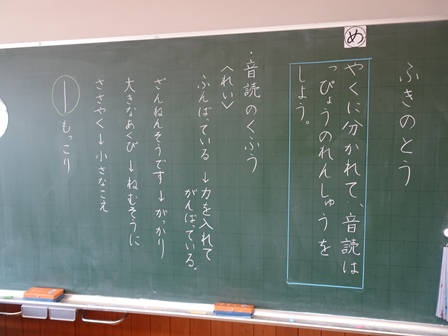 ふきのとう
め
やくに分かれて、音読は
っぴょうのれんしゅうを
しよう。
・音読のくふう
〈れい〉
ふんばっている → 力を入れて
がんばっている。
ざんねんそうです → がっかり
大きなあくび → ねむそうに
ささやく → 小さなこえ
もっこり